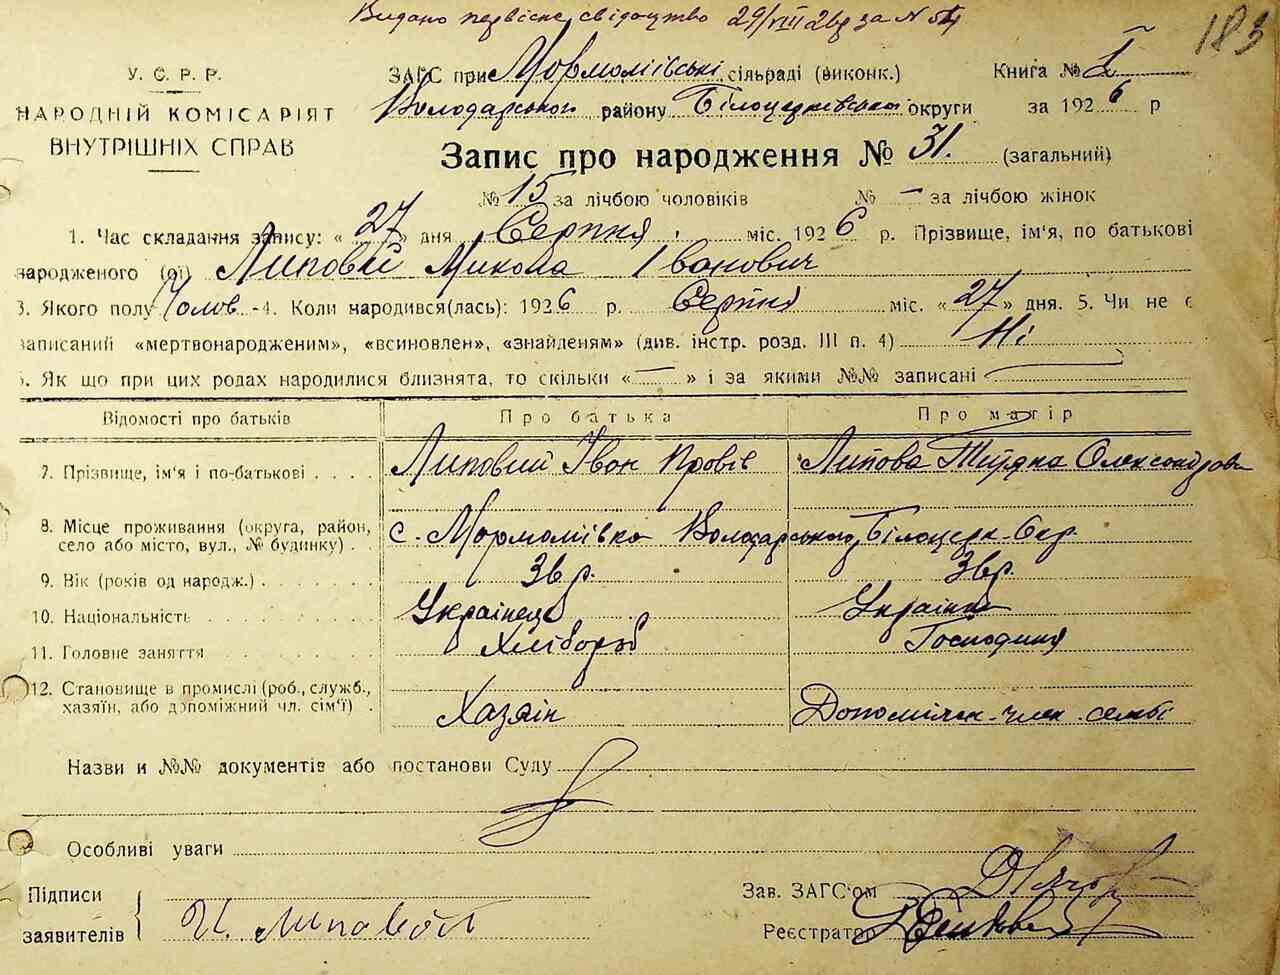 Видано первісне свідоцтво 29/VIII 26р за № 54
183
У. С. Р. Р.
НАРОДНІЙ КОМІСАРІЯТ
ВНУТРІШНІХ СПРАВ
ЗАГС при Мормоліївські сільраді (виконк.) Книга № I
Володарського району Білоцерківської округи за 1926 р
Запис про народження № 31. (загальний)
№ 15 за лічбою чоловіків № — за лічбою жінок
1. Час складання запису: « 27 » дня Серпня міс. 1926 р. Прізвище, ім'я, по батькові
народженого (ої) Липовий Микола Іванович
3. Якого полу Чолов. 4. Коли народився(лась): 1926 р. Серпня міс. « 27 » дня. 5. Чи не є
записаний «мертвонародженим», «всиновлен», «знайденям» (див. інстр. розд. III п. 4) Ні
6. Як що при цих родах народилися близнята, то скільки « — » і за якими №№ записані
Відомості про батьків Про батька Про матір
7. Прізвище, ім'я і по-батькові Липовий Іван Провів Липова Тетяна Олександрова
8. Місце проживання (округа, район,
село або місто, вул., № будинку) с. Мормоліївка Володарського Білоцерк.
9. Вік (років од народж.) 3 р.
10. Національність Українець Українка
11. Головне заняття Хлібороб Господиня
12. Становище в промислі (роб., служб.,
хазяїн, або допоміжний чл. сім'ї) Хазяін Допоміжн. член семьї
Назви и №№ документів або постанови Суду
Особливі уваги
Підписи
заявителів И. Липовой
Зав. ЗАГС'ом
Реєстратор